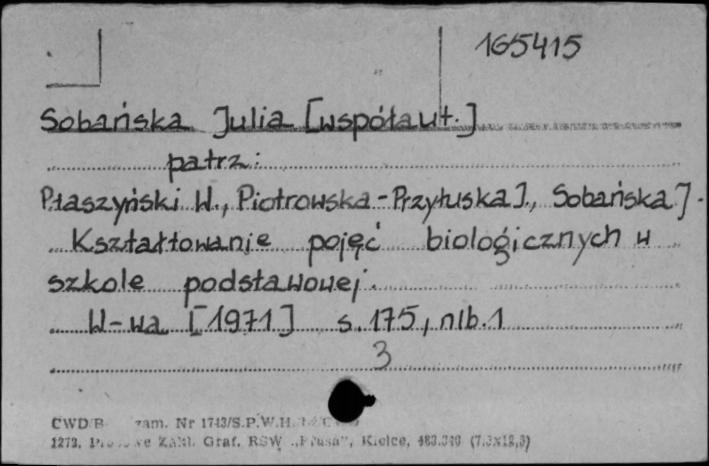 165415
Sobańska Julia [współaut.]
patrz:
Płaszyński W., Piotrowska-Przyłuska J., Sobańska J.
Kształtowanie pojęć biologicznych w
szkole podstawowej.
W-wa [1971] s. 175, nlb. 1
3
CWD/B zam. Nr 1743/S.P.W.H.
1273. Zakł. Graf. RSW „Prasa", Kielce, (7,5x12,5)